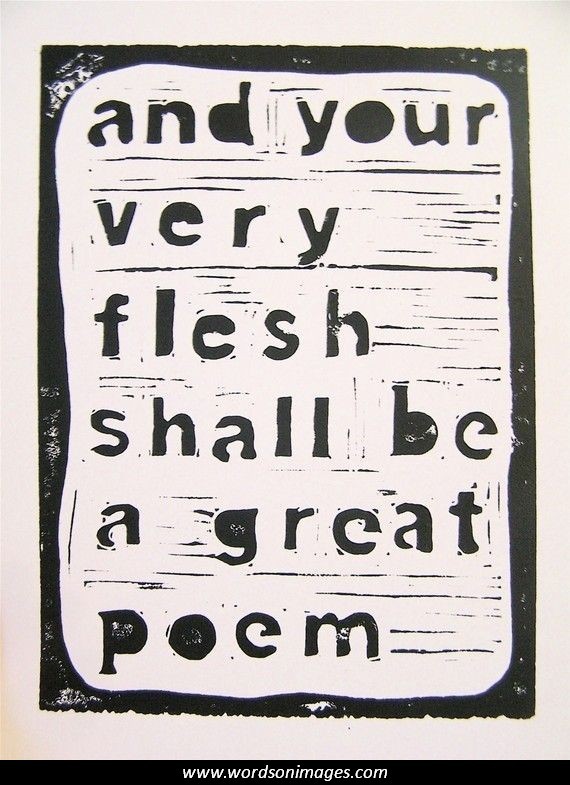 and your
very
flesh
shall be
a great
poem
www.wordsonimages.com